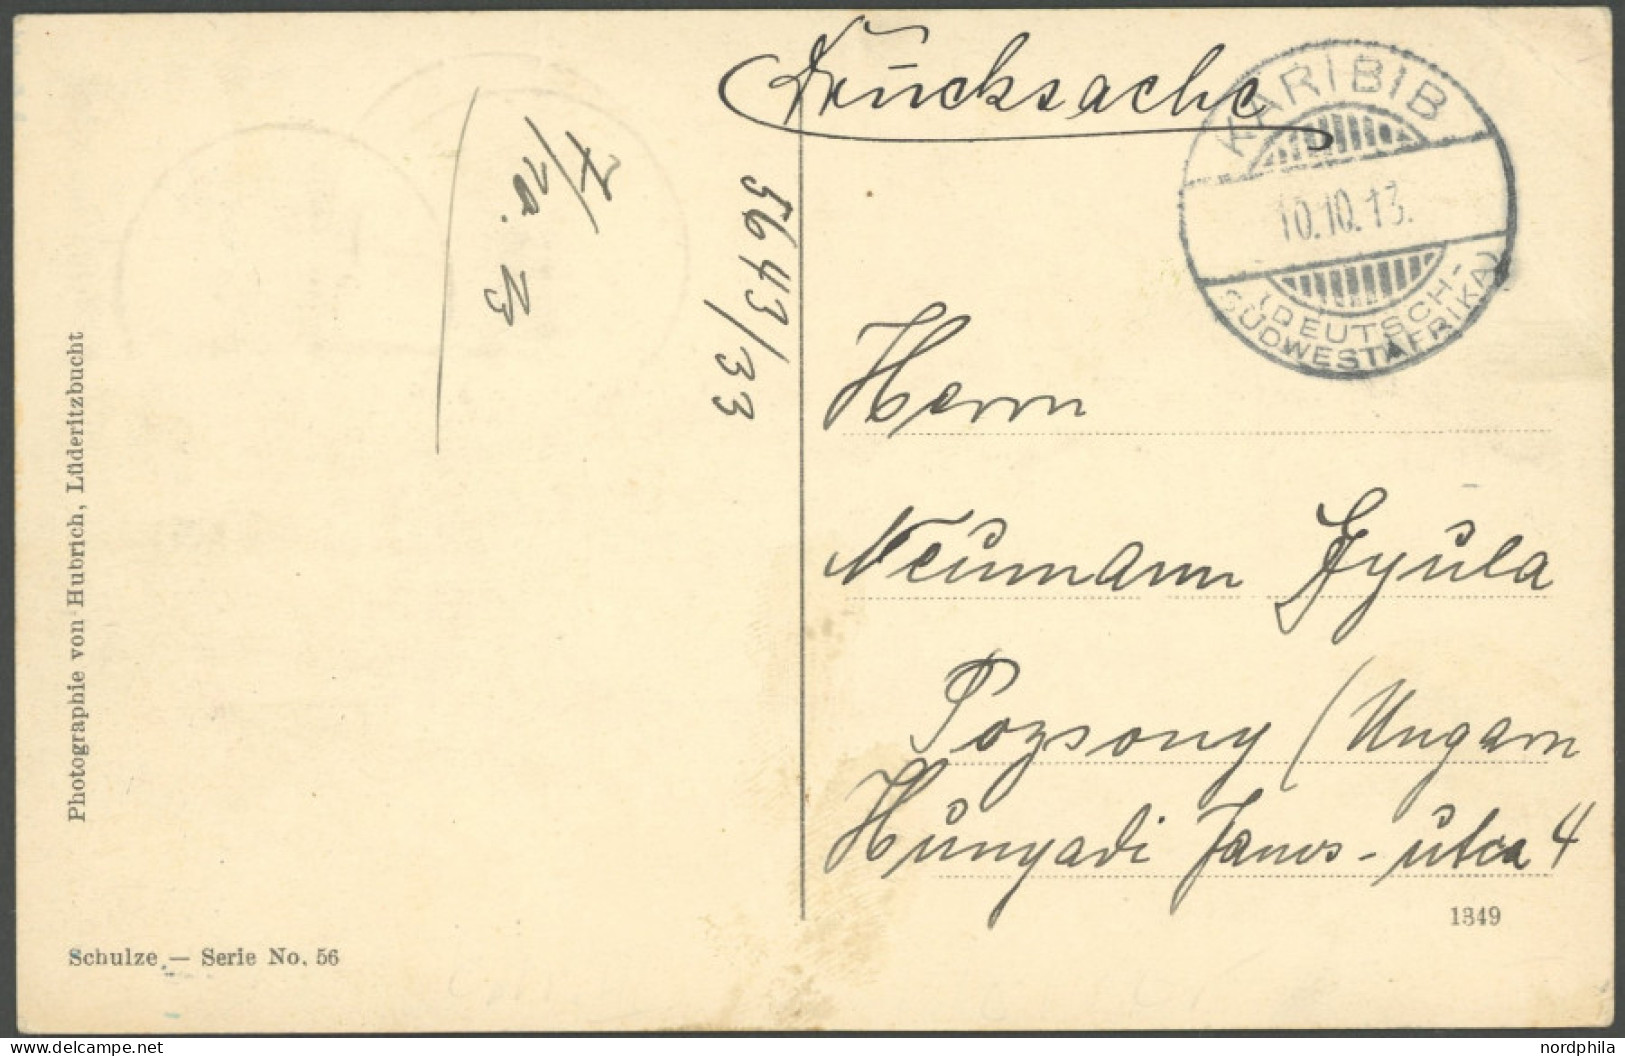 Drucksache
KARIBIB
10.10.13.
(DEUTSCH-
SÜDWESTAFRIKA)
5643/33
Herrn
Neumann Gyula
Pozsony (Ungarn
Hunyadi Janos-utca 4
1349
Photographie von Hubrich, Lüderitzbucht
Schulze — Serie No. 56
www.delcampe.net
nordphila